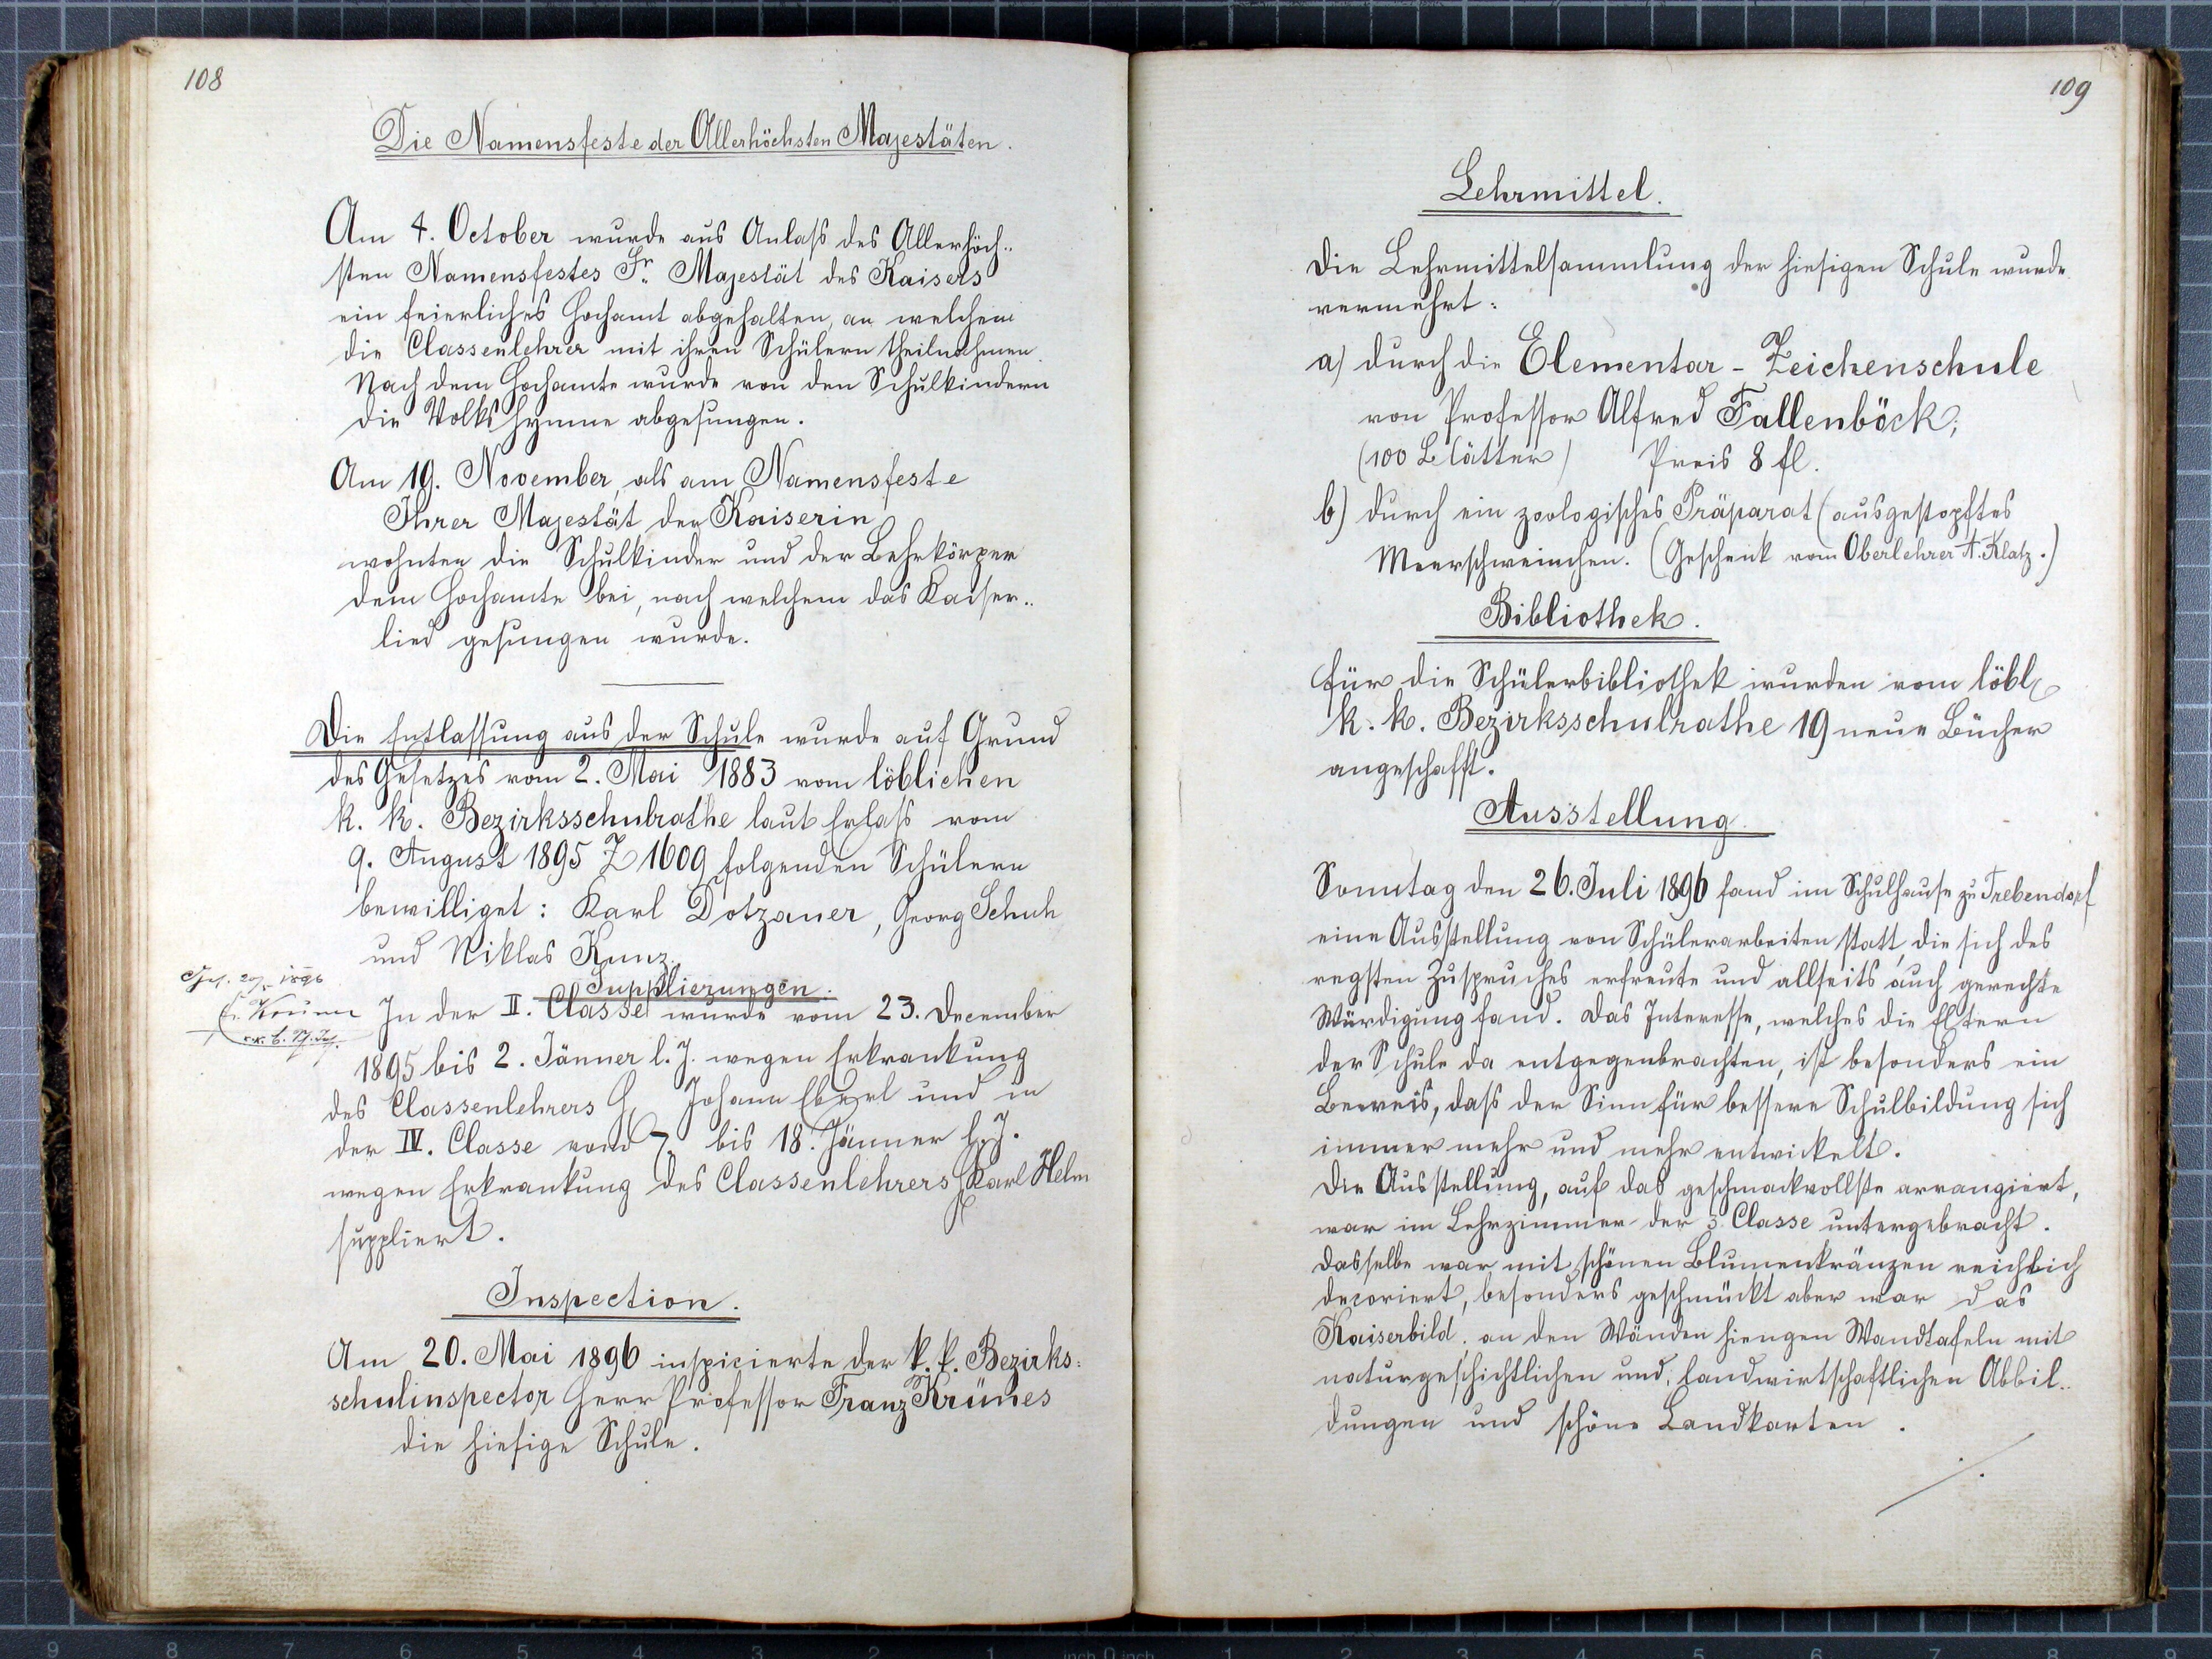 108
Die Namensfeste der Allerhöchsten Majestäten.
Am 4. October wurde aus Anlaß des Allerhöch-
sten Namensfestes Sr. Majestät des Kaisers
ein feierliches Hochamt abgehalten, an welchem
die Classenlehrer mit ihren Schülern theilnahmen.
Nach dem Hochamte wurde von den Schulkindern
die Volkshymne abgesungen.
Am 19. November, als am Namensfeste
Ihrer Majestät der Kaiserin
wohnten die Schulkinder und der Lehrkörper
dem Hochamte bei, nach welchem das Kaiser-
lied gesungen wurde.
Die Entlassung aus der Schule wurde auf Grund
des Gesetzes vom 2. Mai 1883 vom löblichen
k. k. Bezirksschulrathe laut Erlaß vom
9. August 1895 Z 1609 folgenden Schülern
bewilliget: Karl Dotzauer, Georg Schuh
und Niklas Kunz.
Supplierungen.
Ges. 20/5 1896
In der II. Classe wurde vom 23. December
1895 bis 2. Jänner l. J. wegen Erkrankung
des Classenlehrers H. Johann Eberl und in
der IV. Classe vom 7. bis 18. Jänner l. J.
wegen Erkrankung des Classenlehrers H Karl Helm
suppliert.
Inspection.
Am 20. Mai 1896 inspicierte der k. k. Bezirks-
schulinspector Herr Professor Franz Krünes
die hiesige Schule.
109
Lehrmittel.
Die Lehrmittelsammlung der hiesigen Schule wurde
vermehrt:
a) durch die Elementar-Zeichenschule
von Professor Alfred Fallenböck;
(100 Blätter) Preis 8 fl.
b) durch ein zoologisches Präparat (ausgestopftes
Meerschweinchen. (Geschenk vom Oberlehrer A. Klatz.)
Bibliothek.
Für die Schülerbibliothek wurden vom löbl
k. k. Bezirksschulrathe 19 neue Bücher
angeschafft.
Ausstellung.
Sonntag den 26. Juli 1896 fand im Schulhause zu Trebendorf
eine Ausstellung von Schülerarbeiten statt, die sich des
regsten Zuspruches erfreute und allseits auch gerechte
Würdigung fand. Das Interesse, welches die Eltern
der Schule da entgegenbrachten, ist besonders ein
Beweis, daß der Sinn für bessere Schulbildung sich
immer mehr und mehr entwickelt.
Die Ausstellung, auf das geschmackvollste arrangiert,
war im Lehrzimmer der 3. Classe untergebracht.
Dasselbe war mit schönen Blumenkränzen reichlich
decoriert, besonders geschmückt aber war das
Kaiserbild; an den Wänden hiengen Wandtafeln mit
naturgeschichtlichen und landwirtschaftlichen Abbil-
dungen und schöne Landkarten.
./.
9 8 7 6 5 4 3 2 1 inch 0 inch 1 2 3 4 5 6 7 8 9